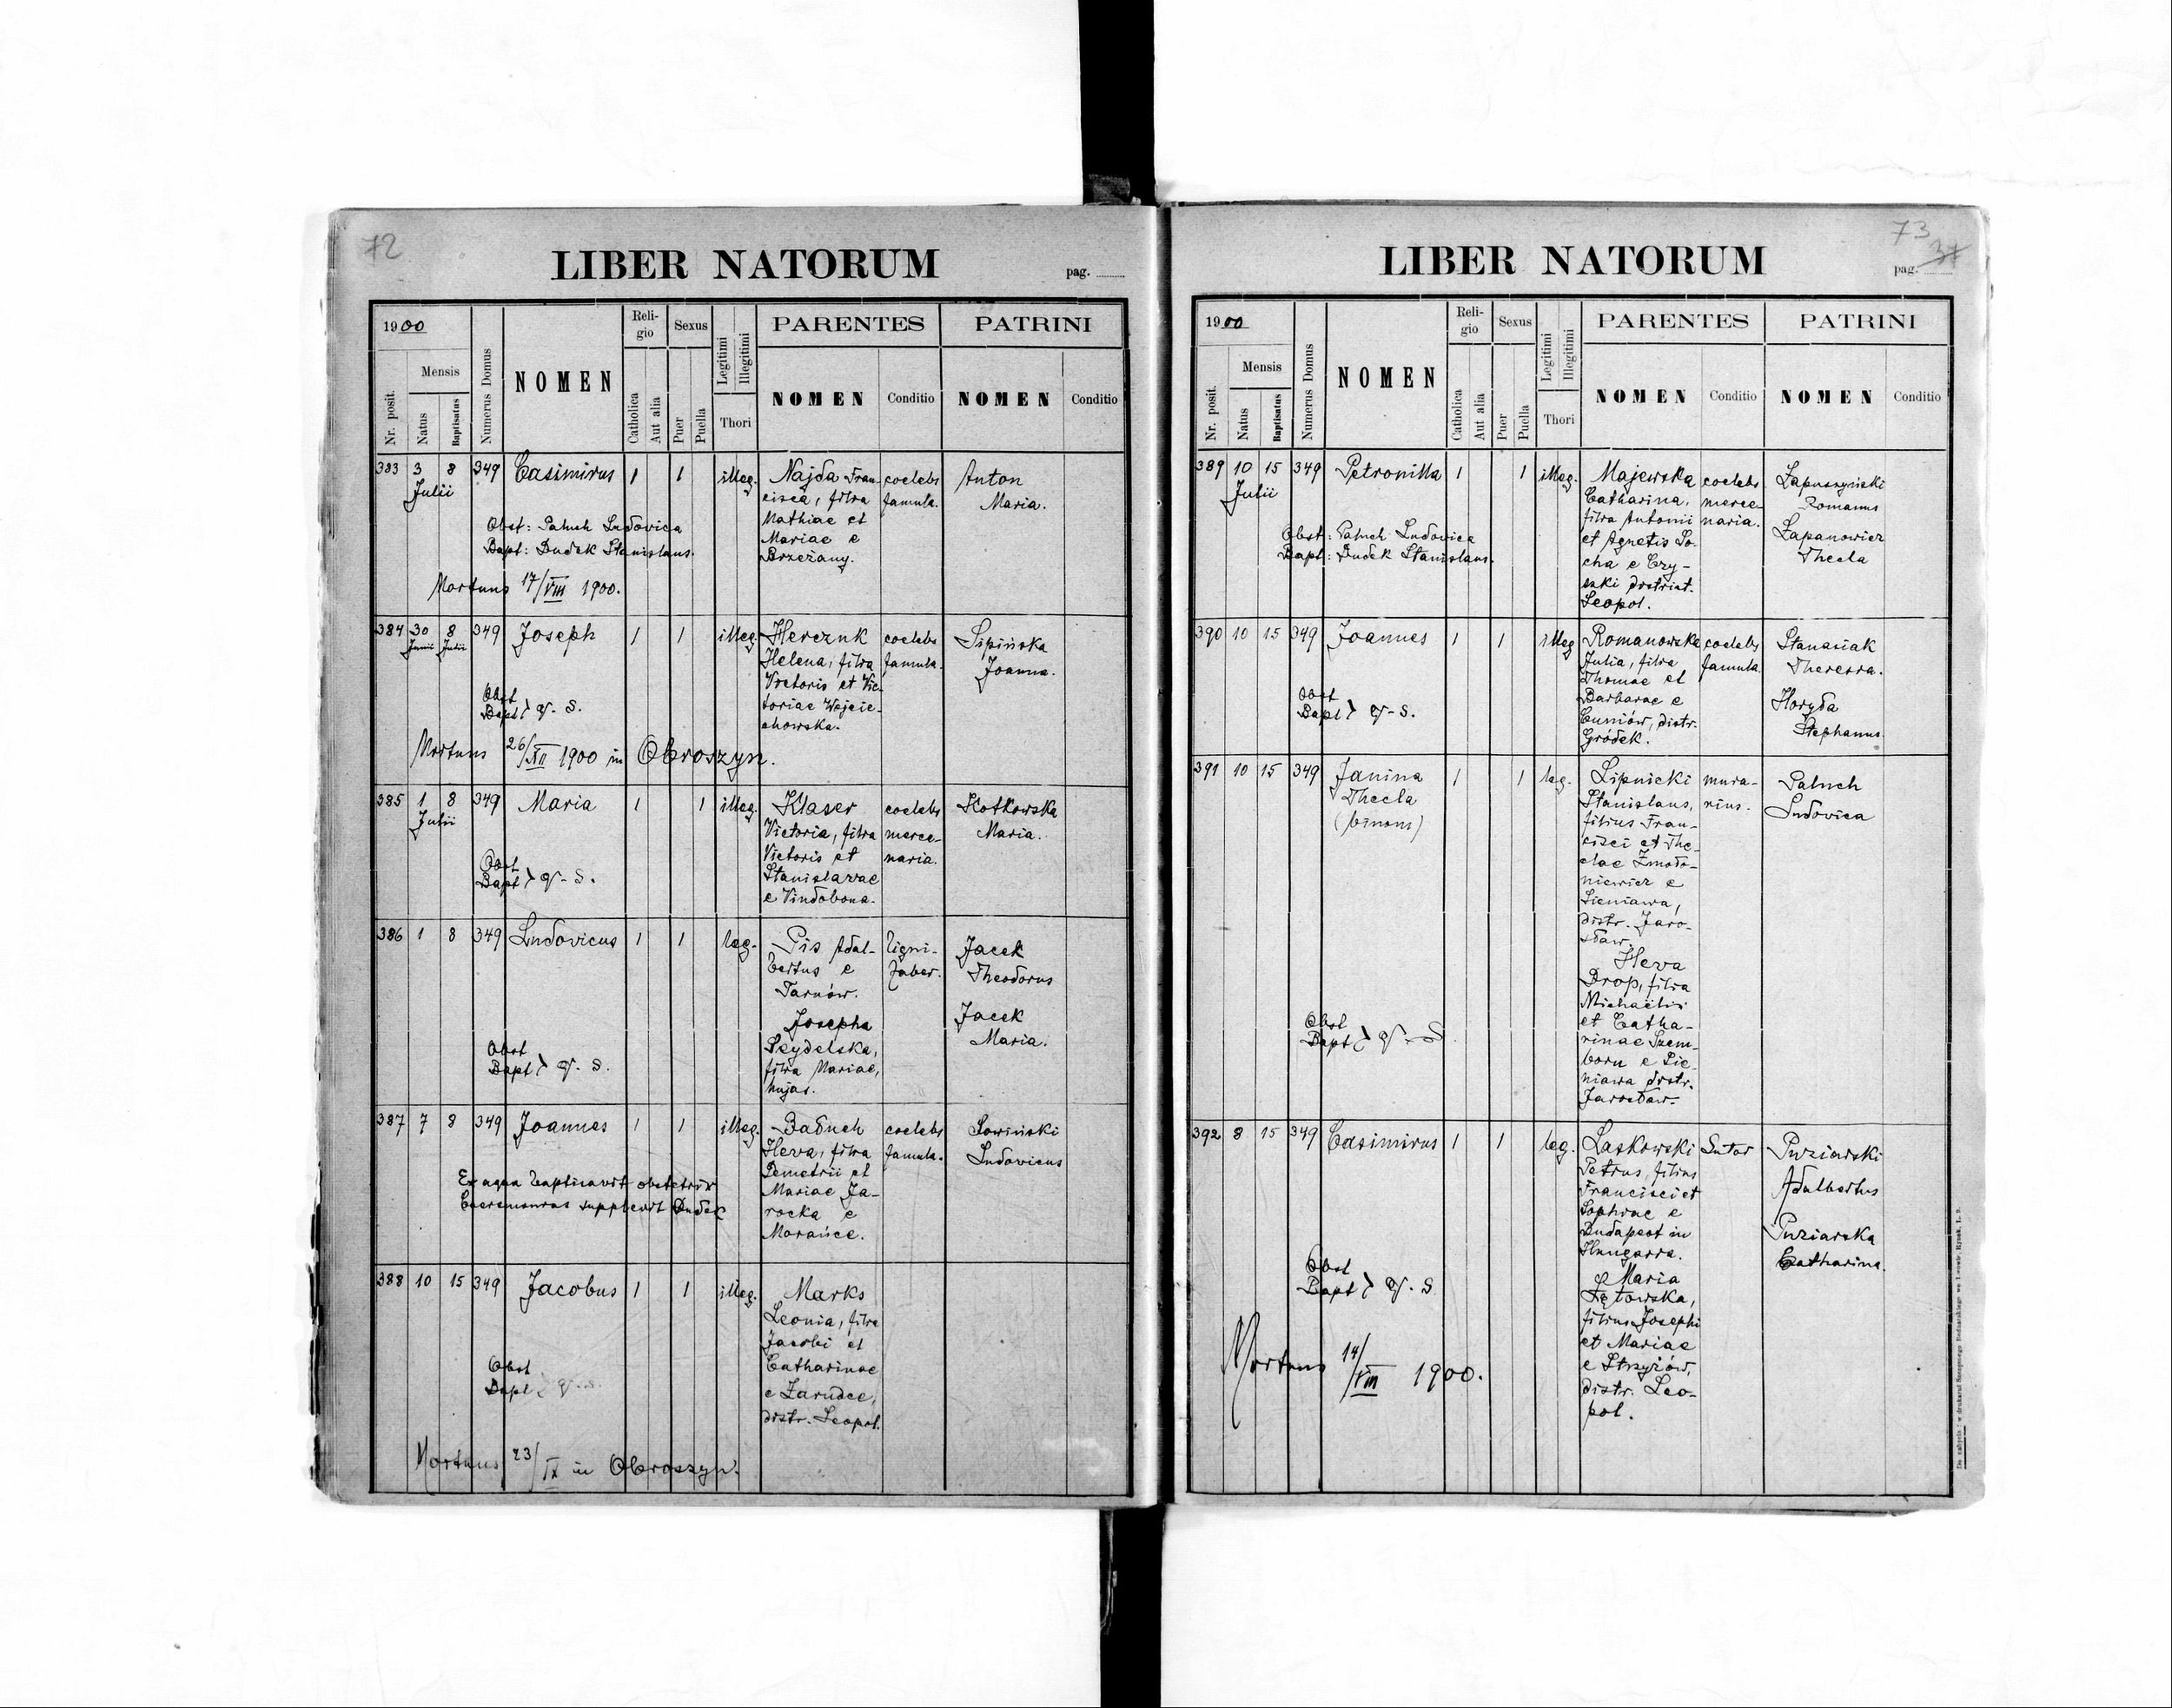 72
LIBER NATORUM
pag.
1900
Nr. posit.
Mensis
Natus
Baptisatus
Numerus Domus
NOMEN
Religio
Catholica
Aut alia
Sexus
Puer
Puella
Legitimi
Illegitimi
Thori
PARENTES
NOMEN
Conditio
PATRINI
NOMEN
Conditio
383 3 8 349 Casimirus 1 1 illeg.
Julii
Najda Fran-
cisca, filia
Mathiae et
Mariae e
Brzeżany.
coelebs
famula.
Anton
Maria.
Obst: Paluch Ludovica
Bapt: Dudek Stanislaus.
Mortuus 17/VIII 1900.
384 30 8 349 Joseph 1 1 illeg.
Junii Julii
Herczuk
Helena, filia
Victoris et Vic-
toriae Wojcie-
chowska.
coelebs
famula.
Lipińska
Joanna.
Obst
Bapt } q. s.
Mortuus 26/XII 1900 in Obroszyn.
385 1 8 349 Maria 1 1 illeg.
Julii
Klaser
Victoria, filia
Victoris et
Stanislavae
e Vindobona.
coelebs
merce-
naria.
Kotkowska
Maria.
Obst
Bapt } q. s.
386 1 8 349 Ludovicus 1 1 leg.
Pis Adal-
bertus e
Tarnów.
Josepha
Seydelska,
filia Mariae,
hujas.
ligni-
faber.
Jacek
Theodorus
Jacek
Maria.
Obst
Bapt } q. s.
387 7 8 349 Joannes 1 1 illeg.
Baduch
Heva, filia
Demetrii et
Mariae Ja-
rocka e
Morańce.
coelebs
famula.
Sowiński
Ludovicus
Ex aqua baptisavit obstetrix
Caeremonias supplevit Dudek
388 10 15 349 Jacobus 1 1 illeg.
Marks
Leonia, filia
Jacobi et
Catharinae
e Zarudce,
distr. Leopol.
Obst
Bapt } q. s.
Mortuus 23/IX in Obroszyn.
73
37
LIBER NATORUM
pag.
1900
Nr. posit.
Mensis
Natus
Baptisatus
Numerus Domus
NOMEN
Religio
Catholica
Aut alia
Sexus
Puer
Puella
Legitimi
Illegitimi
Thori
PARENTES
NOMEN
Conditio
PATRINI
NOMEN
Conditio
389 10 15 349 Petronilla 1 1 illeg.
Julii
Majewska
Catharina,
filia Antonii
et Agnetis So-
cha e Czy-
szki district.
Leopol.
coelebs
merce-
naria.
Łapuszyński
Romanus
Łapanowicz
Thecla
Obst: Paluch Ludovica
Bapt: Dudek Stanislaus.
390 10 15 349 Joannes 1 1 illeg
Romanowska
Julia, filia
Thomae et
Barbarae e
Cuniów, distr.
Gródek.
coelebs
famula.
Stanasiak
Theressa.
Horyda
Stephanus
Obst
Bapt } q. s.
391 10 15 349 Janina 1 1 leg.
Thecla
(binom)
Lipnicki
Stanislaus,
filius Fran-
cisci et The-
clae Żmodo-
niewicz e
Sieniawa,
distr. Jaro-
sław.
Heva
Drop, filia
Michaëlis
et Catha-
rinae Szem-
born e Sie-
niawa distr.
Jarosław.
mura-
rius.
Paluch
Ludovica
Obst
Bapt } q. s
392 8 15 349 Casimirus 1 1 leg.
Laskowski
Petrus, filius
Francisci et
Sophiae e
Budapest in
Hungaria.
Maria
Łętowska,
filius Josephi
et Mariae
e Strzyżów,
distr. Leo-
pol.
Sutor
Puziarski
Adalbertus
Puziarska
Catharina.
Obst
Bapt } q. s
Mortuus 14/VIII 1900.